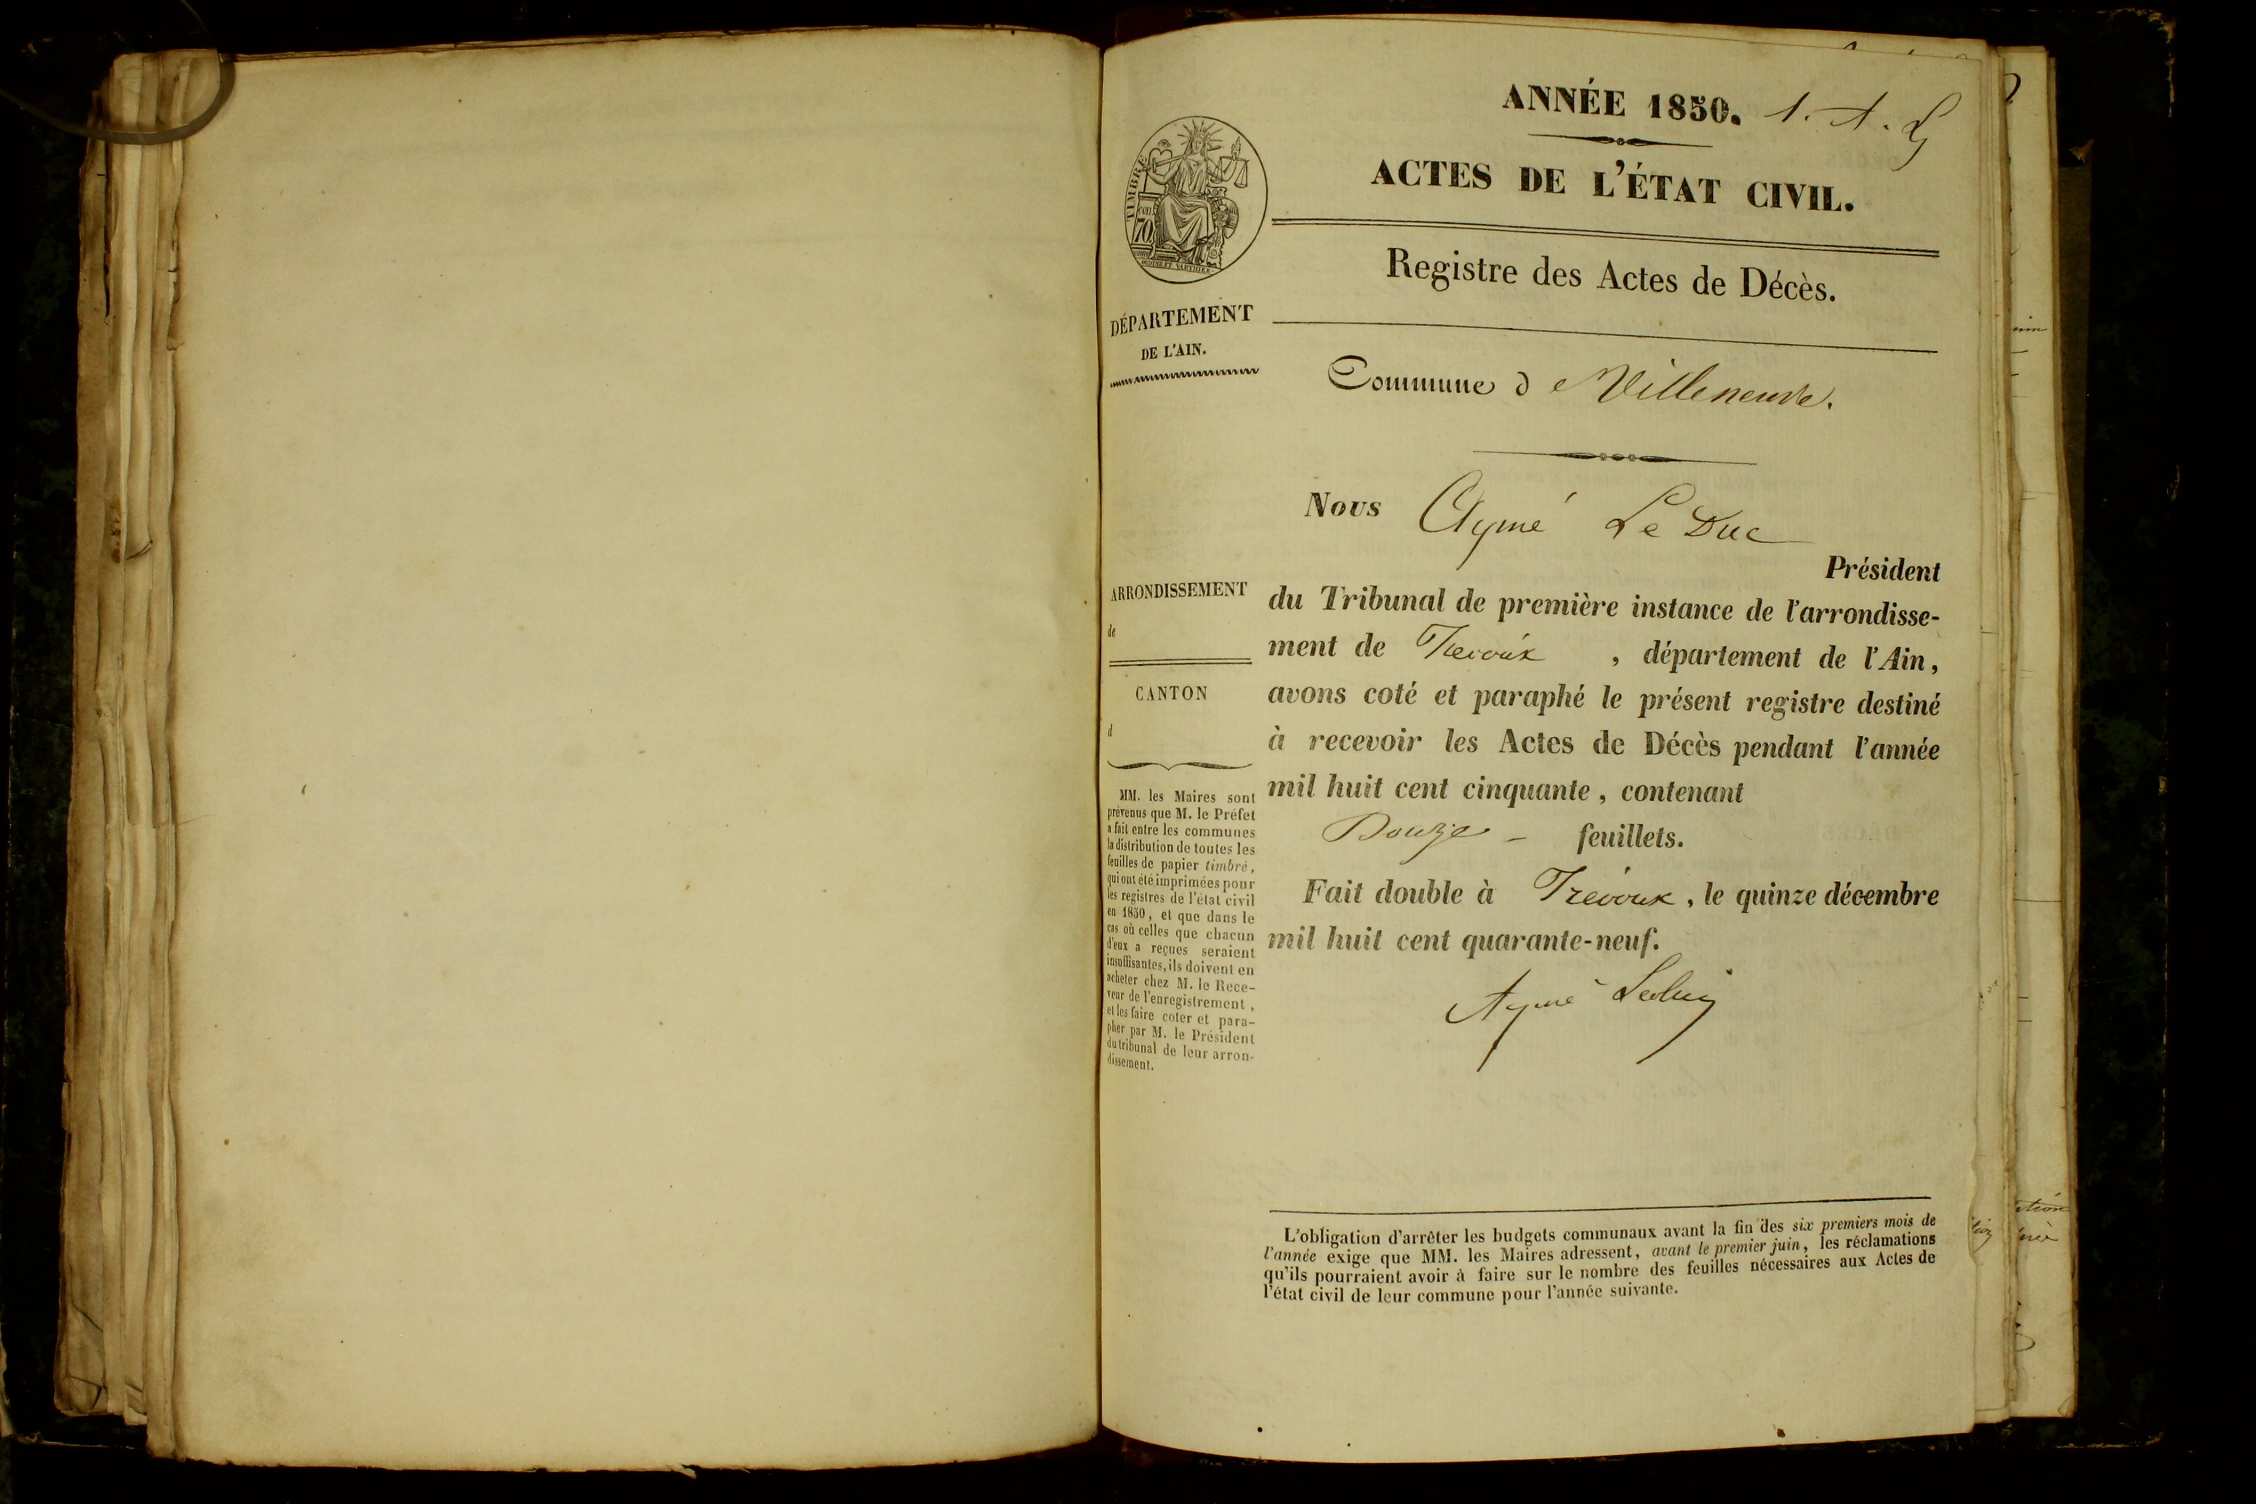 ANNÉE 1850. 1. A. L
ACTES DE L'ÉTAT CIVIL.
Registre des Actes de Décès.
TIMBRE
70
DÉPARTEMENT
DE L'AIN.
Commune de Villeneuve.
Nous Aymé Le Duc
Président
du Tribunal de première instance de l'arrondisse-
ment de Trevoux, département de l'Ain,
avons coté et paraphé le présent registre destiné
à recevoir les Actes de Décès pendant l'année
mil huit cent cinquante, contenant
Douze - feuillets.
Fait double à Trévoux, le quinze décembre
mil huit cent quarante-neuf.
Aymé Leduc
ARRONDISSEMENT
de
CANTON
d
MM. les Maires sont
prévenus que M. le Préfet
a fait entre les communes
la distribution de toutes les
feuilles de papier timbré,
qui ont été imprimées pour
les registres de l'état civil
en 1850, et que dans le
cas où celles que chacun
d'eux a reçues seraient
insuffisantes, ils doivent en
acheter chez M. le Rece-
veur de l'enregistrement,
et les faire coter et para-
pher par M. le Président
du tribunal de leur arron-
dissement.
L'obligation d'arrêter les budgets communaux avant la fin des six premiers mois de
l'année exige que MM. les Maires adressent, avant le premier juin, les réclamations
qu'ils pourraient avoir à faire sur le nombre des feuilles nécessaires aux Actes de
l'état civil de leur commune pour l'année suivante.